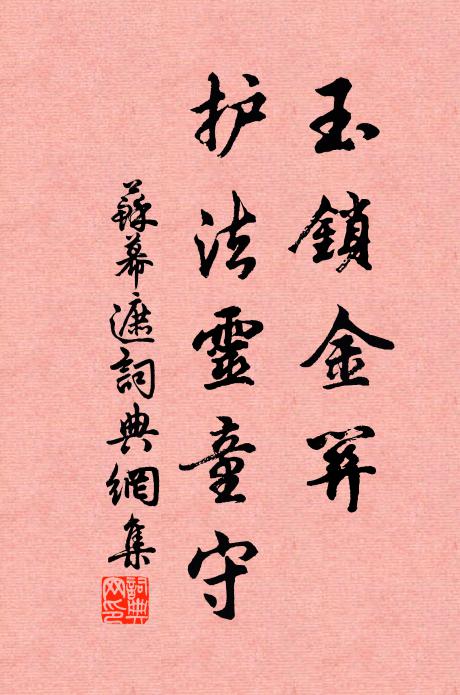 玉鎖金
护法靈童守
蘇幕遮詞典網集
詞典网印